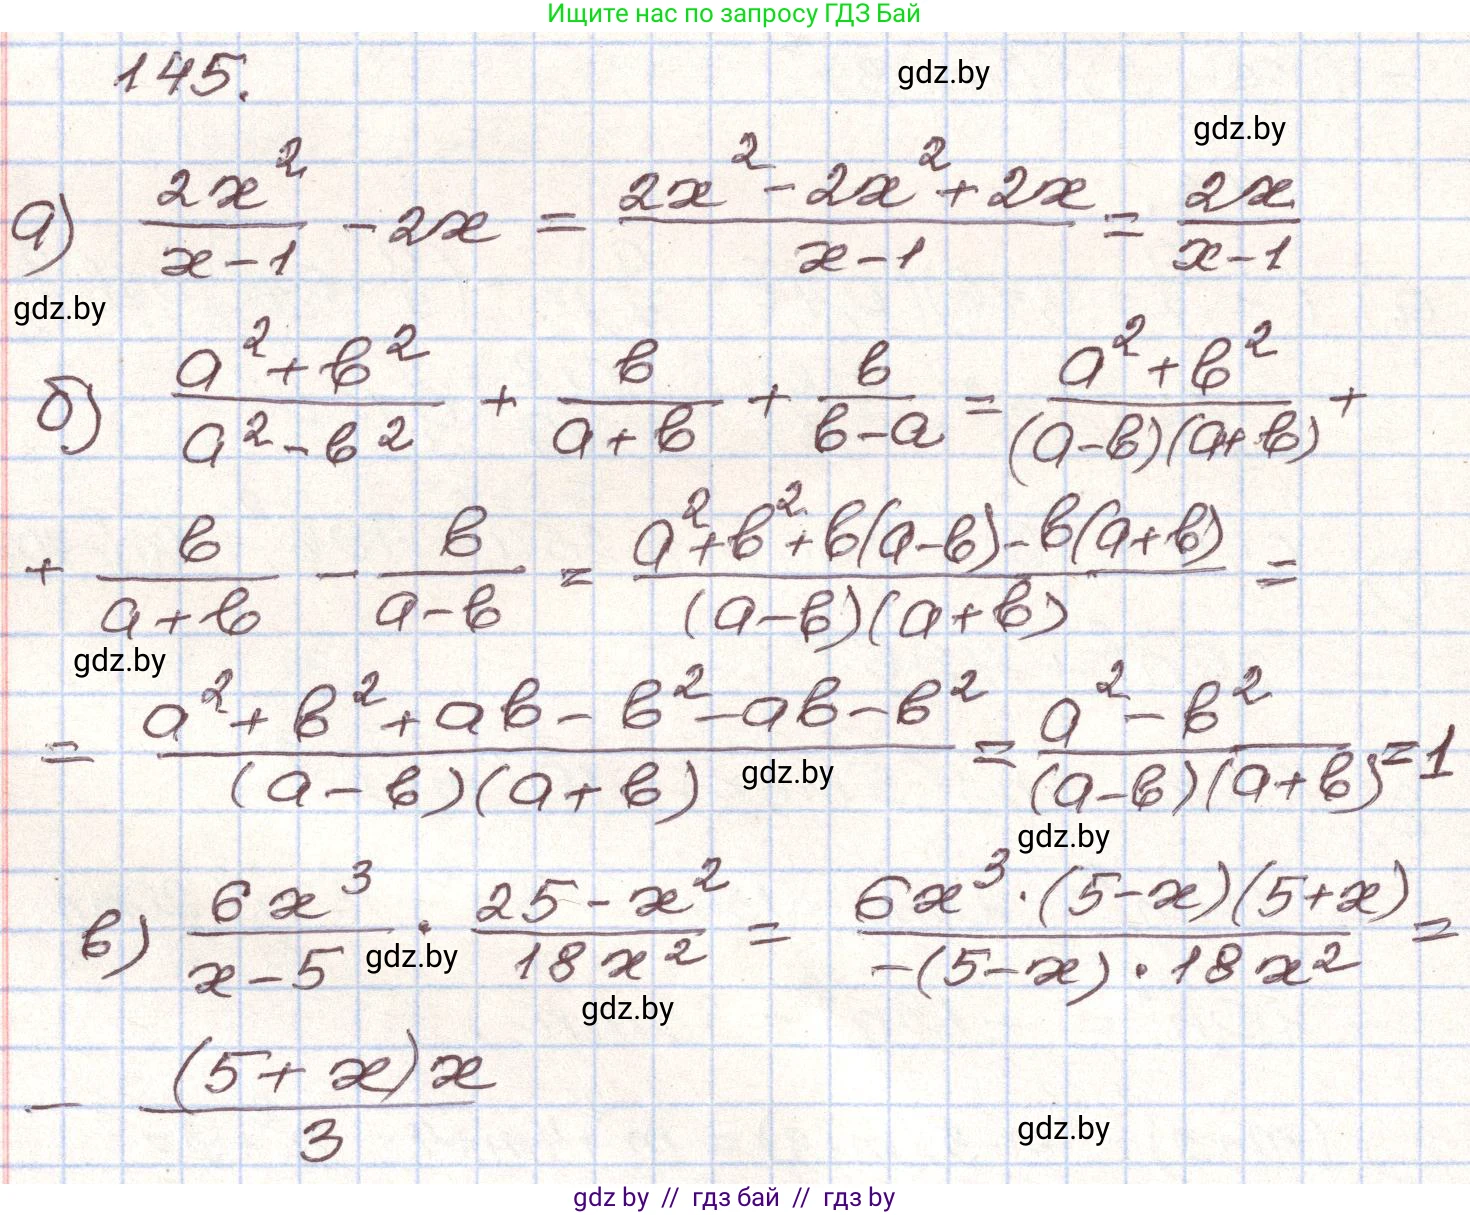 Ищите нас по запросу ГДЗ Бай
145.
gdz.by
gdz.by
а) 2x²/(x-1) - 2x = (2x² - 2x² + 2x)/(x-1) = 2x/(x-1)
gdz.by
б) (a²+b²)/(a²-b²) + b/(a+b) + b/(b-a) = (a²+b²)/((a-b)(a+b)) +
+ b/(a+b) - b/(a-b) = (a²+b²+b(a-b)-b(a+b))/((a-b)(a+b)) =
gdz.by
= (a²+b²+ab-b²-ab-b²)/((a-b)(a+b)) = (a²-b²)/((a-b)(a+b)) = 1
gdz.by
gdz.by
в) 6x³/(x-5) · (25-x²)/(18x²) = (6x³·(5-x)(5+x))/(-(5-x)·18x²) =
gdz.by
gdz.by
- ((5+x)x)/3
gdz.by
gdz by // гдз бай // гдз by